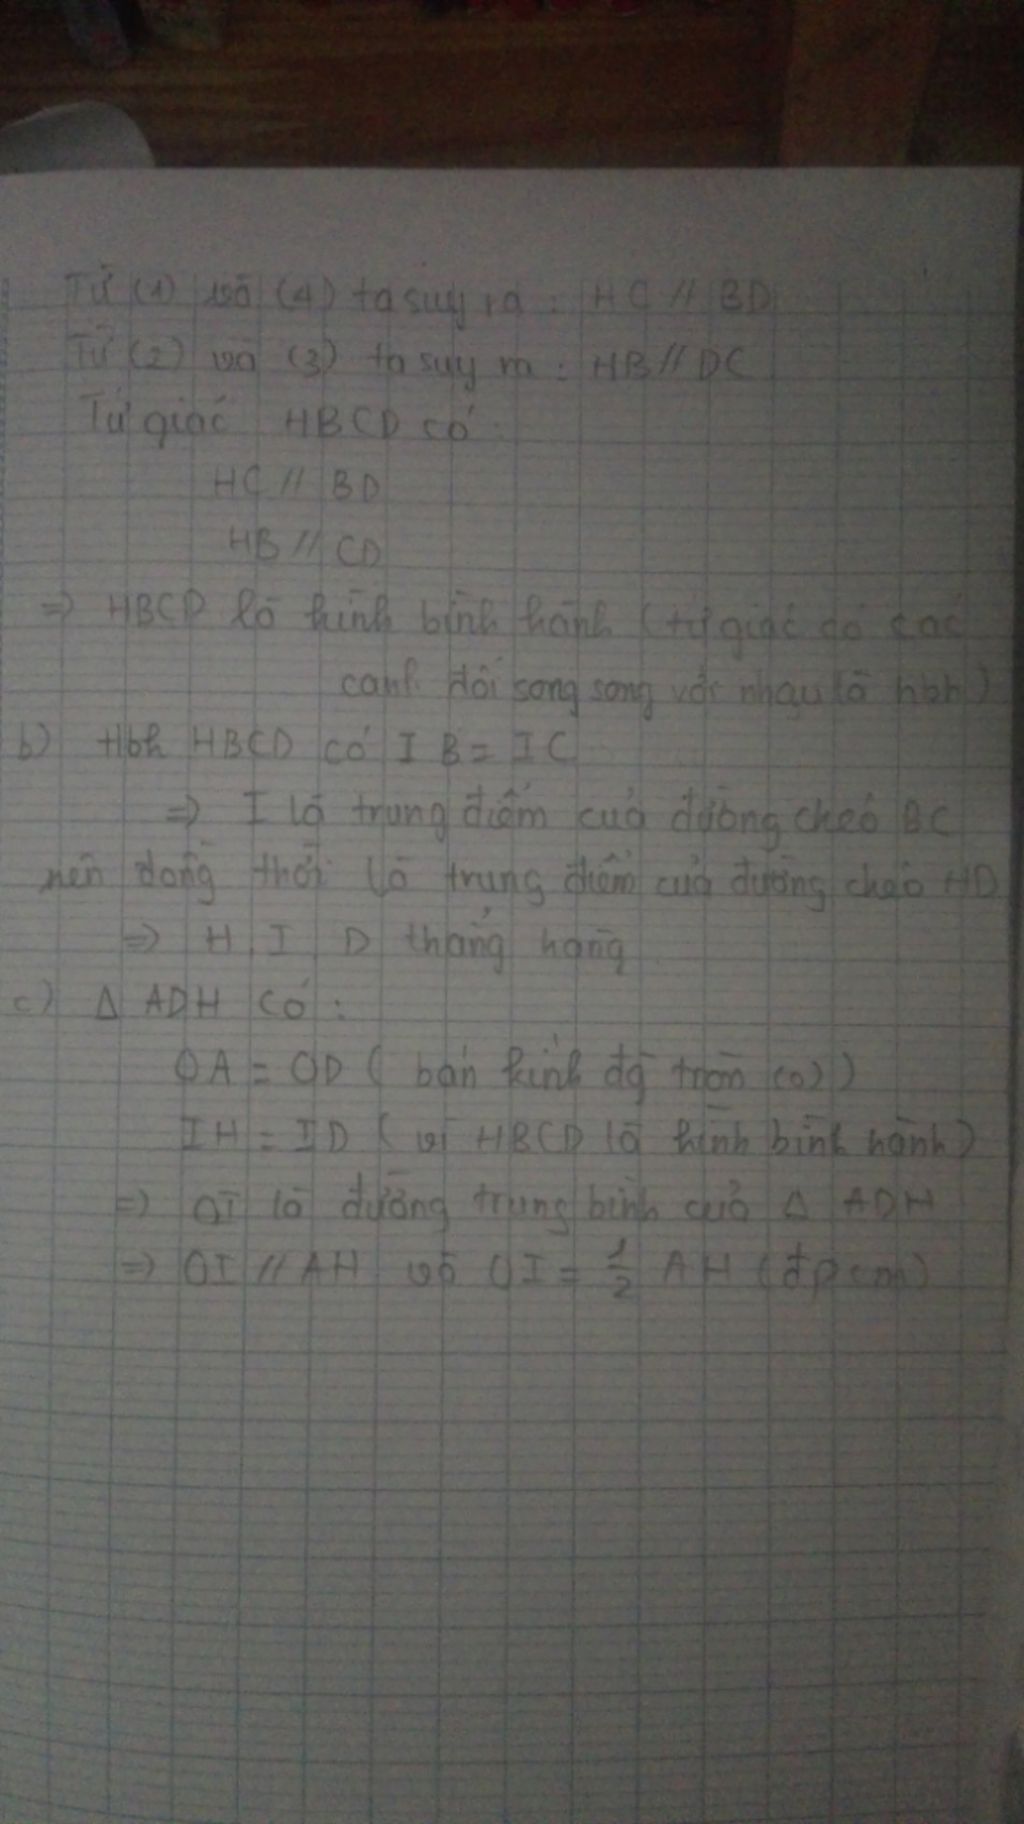 Từ (1) và (4) ta suy ra : HC // BD
Từ (2) và (3) ta suy ra : HB // DC
Tứ giác HBCD có :
HC // BD
HB // CD
=> HBCD là hình bình hành (tứ giác có các
cạnh đối song song với nhau là hbh)
b) Hbh HBCD có IB = IC
=> I là trung điểm của đường chéo BC
nên đồng thời là trung điểm của đường chéo HD
=> H, I, D thẳng hàng
c) Δ ADH có :
OA = OD ( bán kính đg tròn (O))
IH = ID ( vì HBCD là hình bình hành)
=> OI là đường trung bình của Δ ADH
=> OI // AH và OI = 1/2 AH (đpcm)